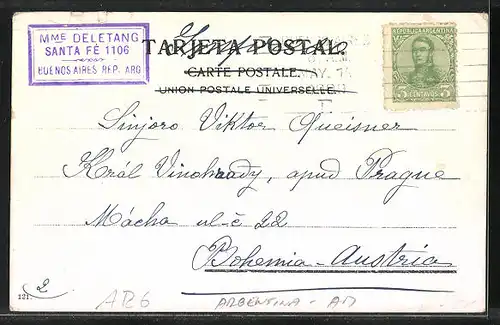 MME DELETANG
SANTA FÉ 1106
BUENOS AIRES REP. ARG
TARJETA POSTAL.
CARTE POSTALE.
UNION POSTALE UNIVERSELLE.
REPUBLICA ARGENTINA
5 CENTAVOS 5
Sinjoro Viktor Queisner
Král Vinohrady, apud Prague
Mácha ul-č 22
Bohemia-Austria
121.
2
AR6
ARGENTINA - AM